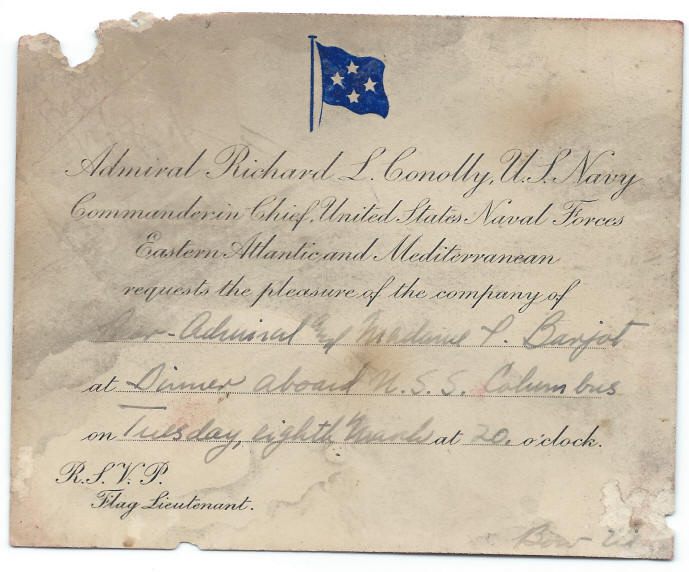 Admiral Richard L. Conolly, U.S. Navy
Commander in Chief, United States Naval Forces
Eastern Atlantic and Mediterranean
requests the pleasure of the company of
Rear-Admiral and Madame P. Barjot
at Dinner aboard U.S.S. Columbus
on Tuesday, eighth March at 20. o'clock.
R.S.V.P.
Flag Lieutenant.